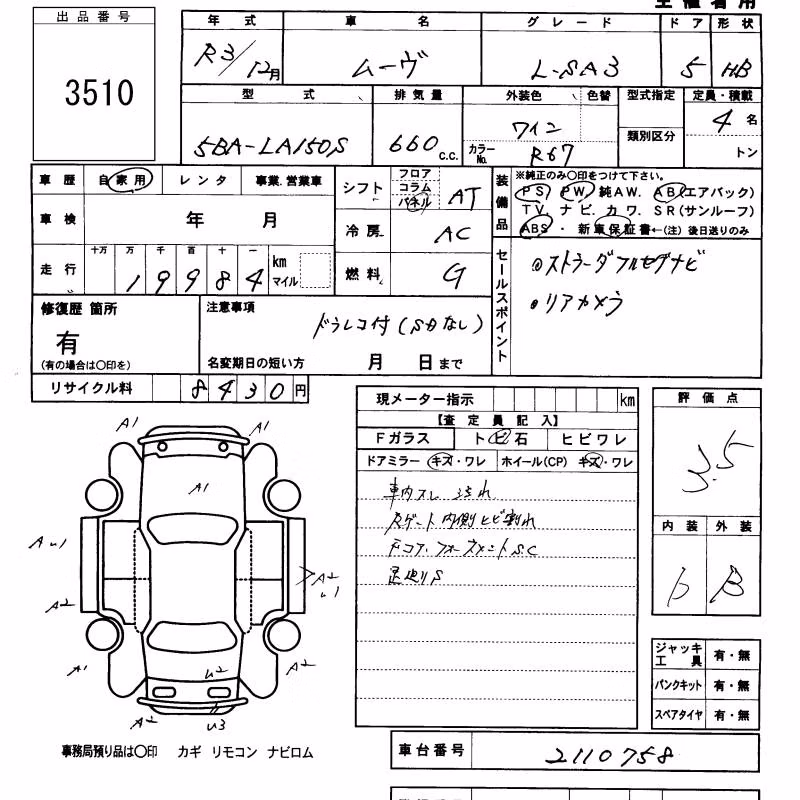 出品番号
3510
年式 車名 グレード ドア 形状
R3/12月 ムーヴ L-SA3 5 HB
型式 排気量 外装色 色替 型式指定 定員・積載
5BA-LA150S 660 c.c. ワイン 類別区分 4名
カラーNo. R67 トン
車歴 自家用 レンタ 事業.営業車
シフト フロア コラム パネル AT
装備品 ※純正のみ○印をつけて下さい。
PS PW 純AW. AB(エアバック)
TV. ナビ. カワ. SR(サンルーフ)
ABS ・ 新車保証書←(注) 後日送りのみ
車検 年 月
冷房 AC
走行 十万 万 千 百 十 一 km マイル
19984
燃料 G
セールスポイント
◎ストラーダフルセグナビ
●リアカメラ
修復歴 箇所
有
(有の場合は○印を)
注意事項
ドラレコ付(SDなし)
名変期日の短い方 月 日まで
リサイクル料 8430円
現メーター指示 km
【査定員記入】
Fガラス トビ石 ヒビワレ
ドアミラー キズ・ワレ ホイール(CP) キズ・ワレ
車内スレ ヨゴれ
Rゲート内側ヒビ割れ
足廻りS
評価点
3.5
内装 外装
b B
A1 A1
A1
AU1 A2 U1
A2
A1 U2 A2
A2 U3
ジャッキ工具 有・無
パンクキット 有・無
スペアタイヤ 有・無
事務局預り品は○印 カギ リモコン ナビロム
車台番号 2110758